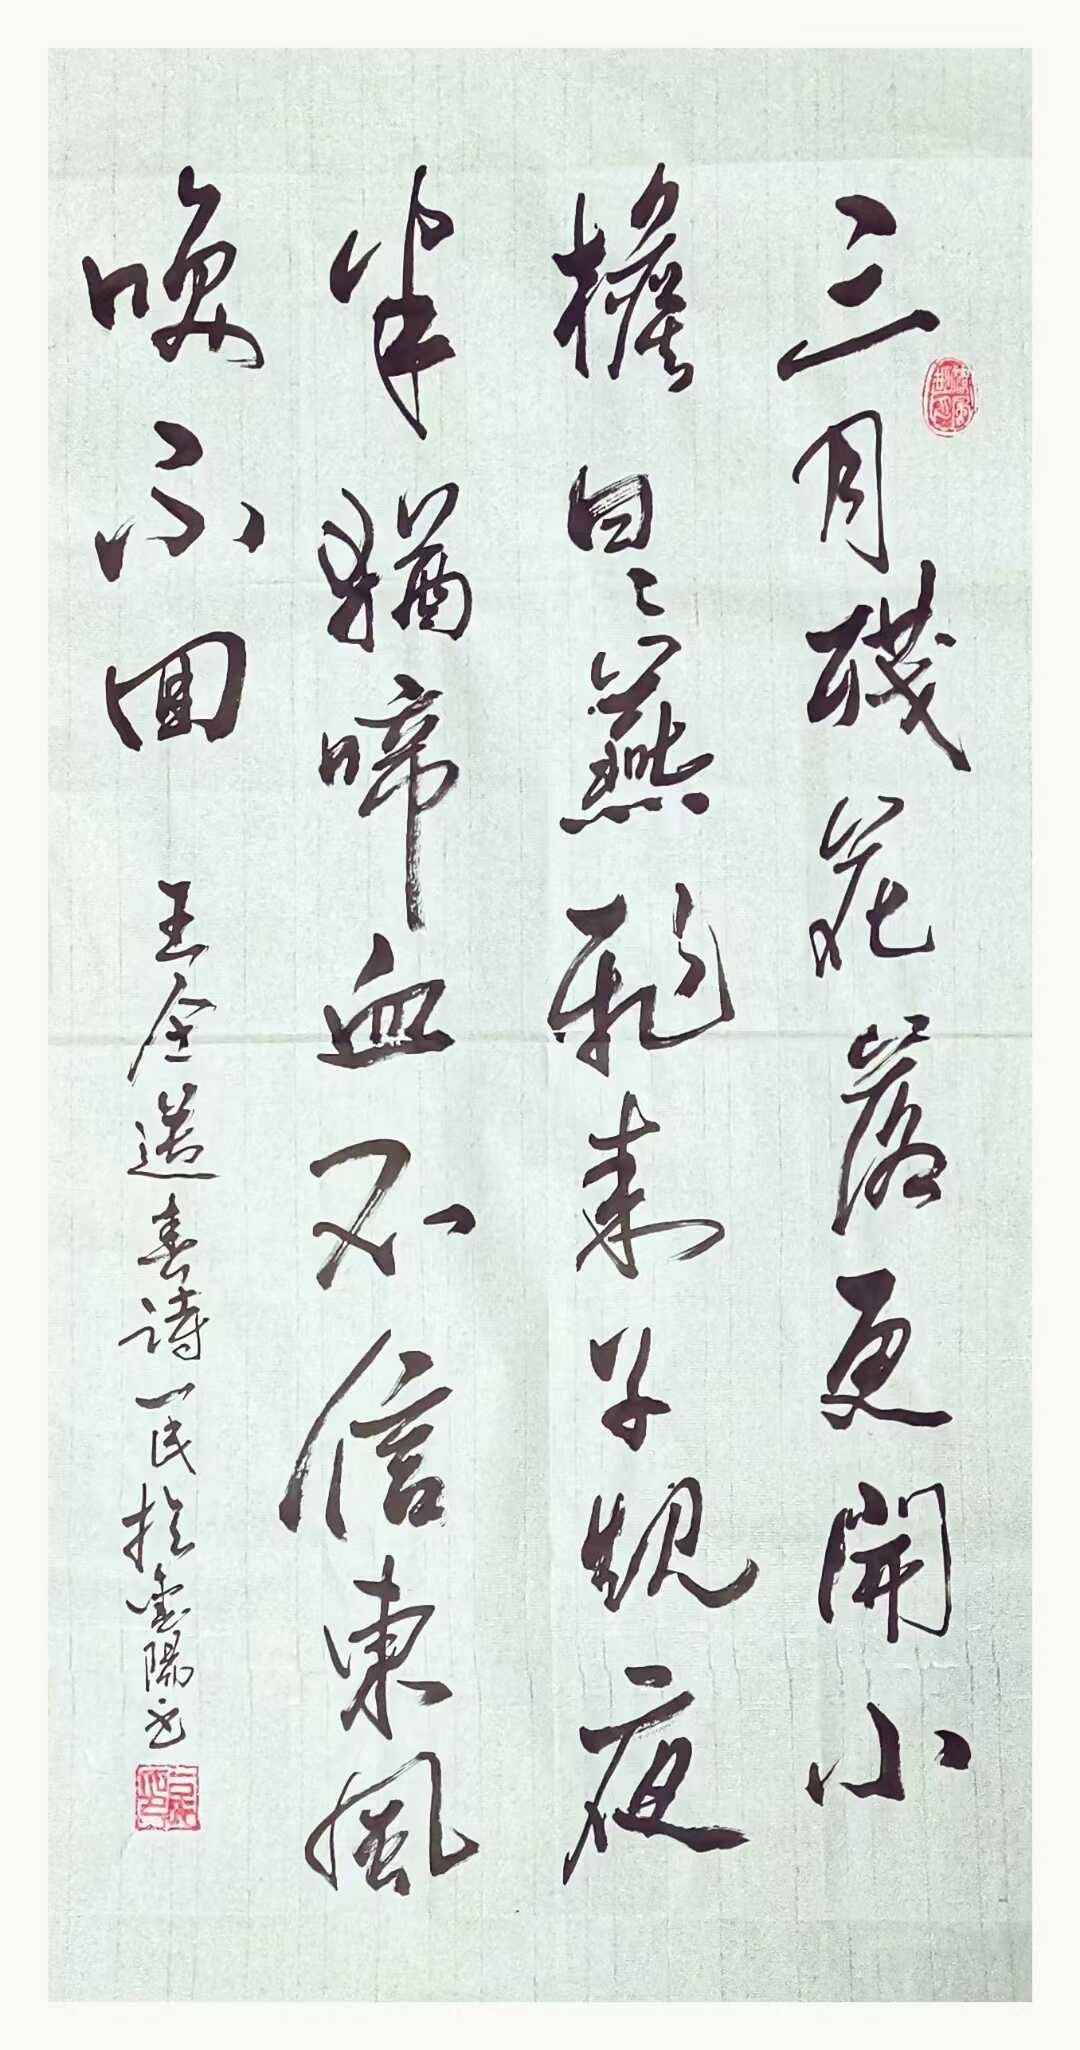 三月殘花落更開小
檐日〻燕飛来子規夜
半猶啼血不信東風
喚不回
王令送春詩一民於雲陽書